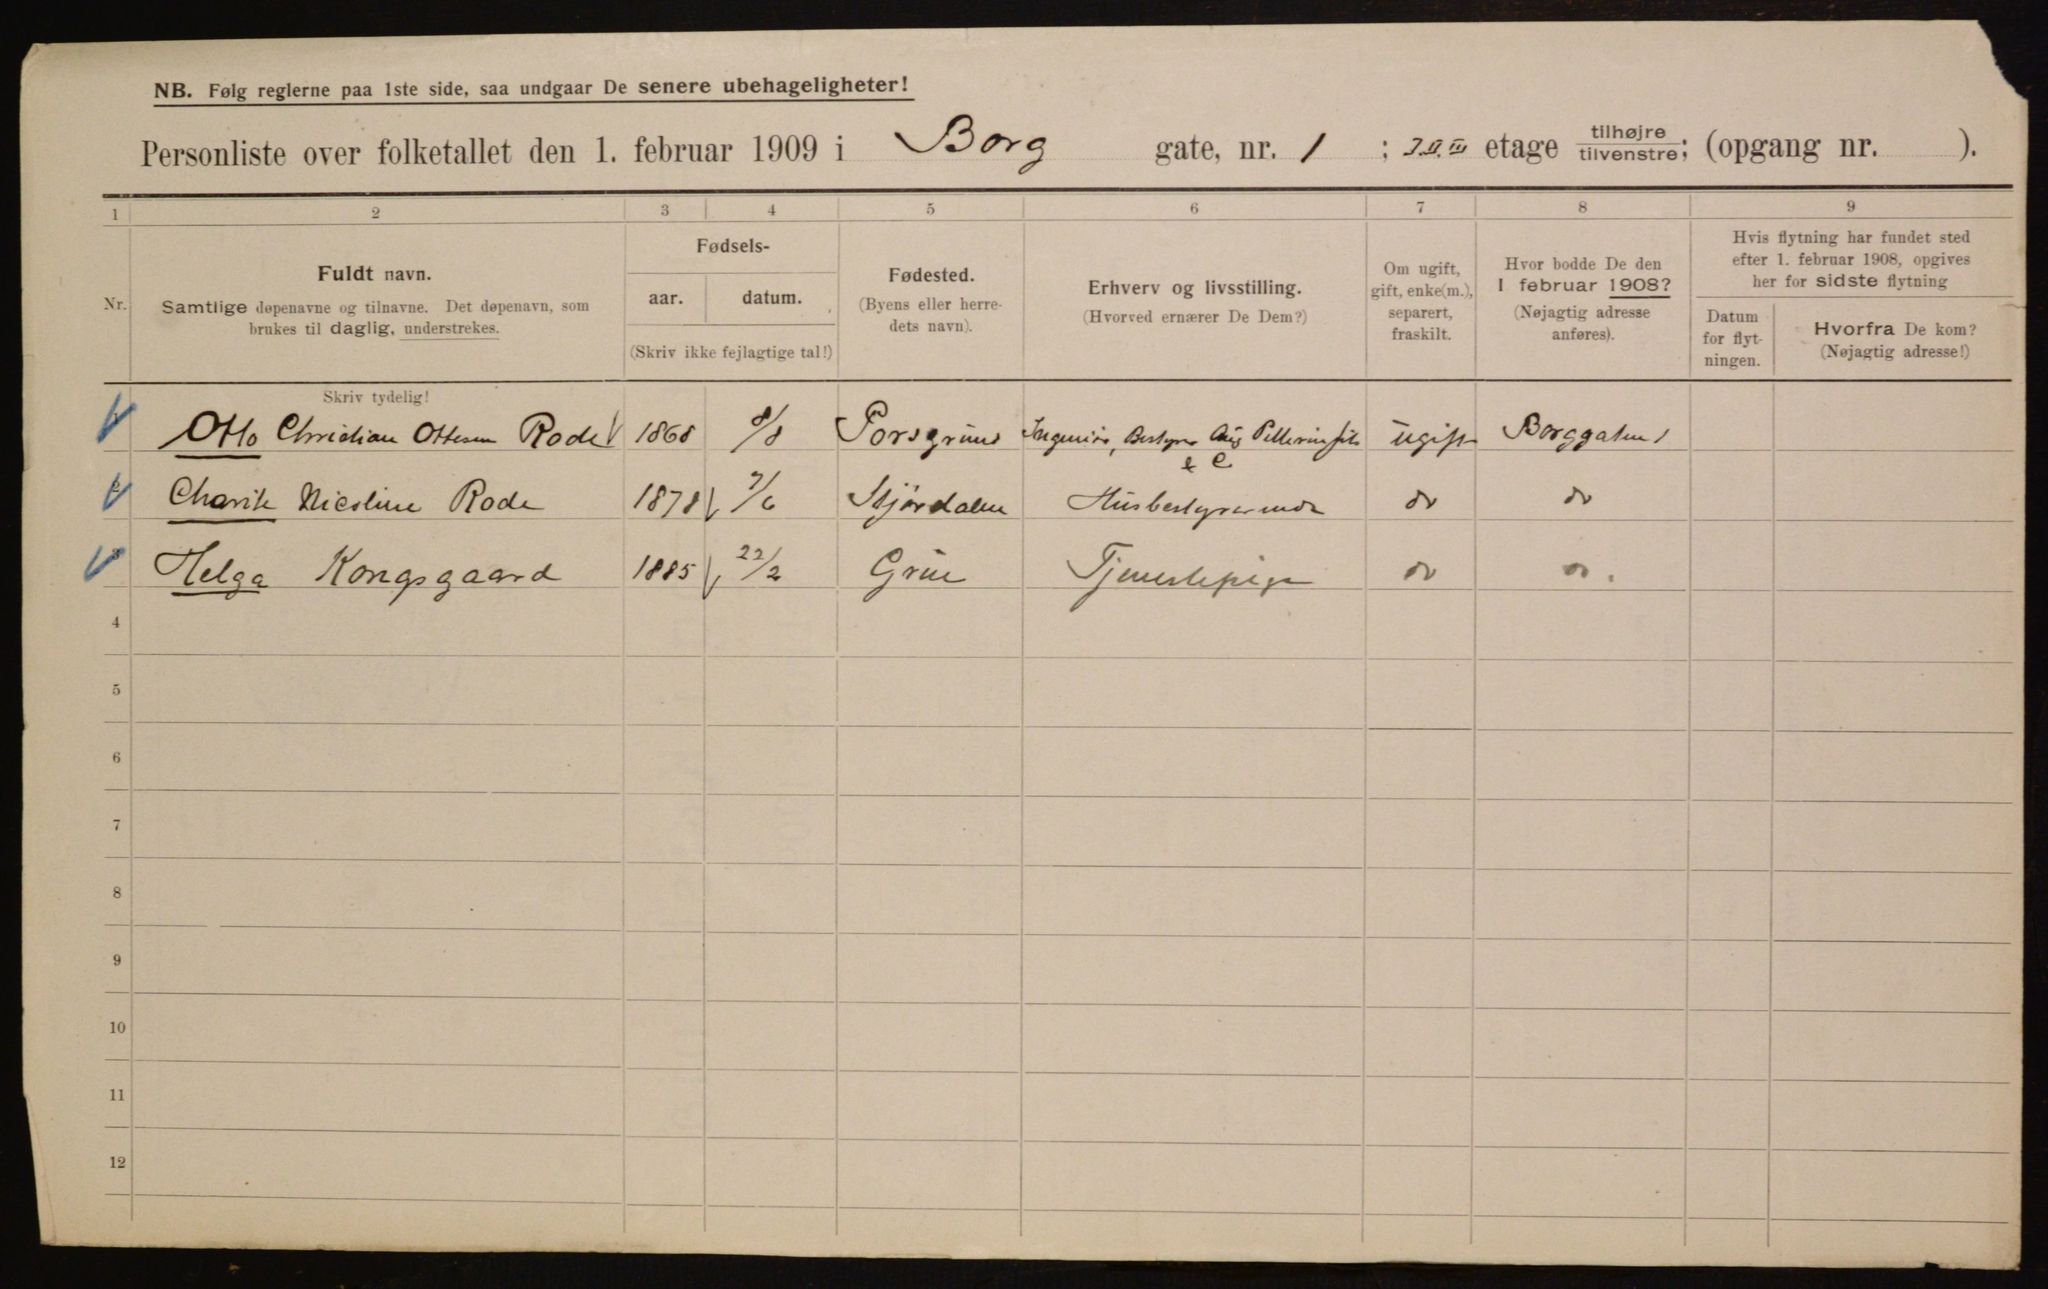 NB. Følg reglerne paa 1ste side, saa undgaar De senere ubehageligheter!
Personliste over folketallet den 1. februar 1909 i Borg gate, nr. 1 ; I. II. III etage tilhøjre tilvenstre; (opgang nr. ).
1 2 3 4 5 6 7 8 9
Nr.
Fuldt navn.
Samtlige døpenavne og tilnavne. Det døpenavn, som
brukes til daglig, understrekes.
Skriv tydelig!
Fødsels-
aar. datum.
(Skriv ikke fejlagtige tal!)
Fødested.
(Byens eller herre-
dets navn).
Erhverv og livsstilling.
(Hvorved ernærer De Dem?)
Om ugift,
gift, enke(m.),
separert,
fraskilt.
Hvor bodde De den
1 februar 1908?
(Nøjagtig adresse
anføres).
Hvis flytning har fundet sted
efter 1. februar 1908, opgives
her for sidste flytning
Datum
for flyt-
ningen.
Hvorfra De kom?
(Nøjagtig adresse!)
Otto Christian Ottesen Rode 1868 8/8 Porsgrund Ingeniør, Bestyrer Aug Pellerin fils & C ugift Borggaten 1
Nicoline Rode 1878 7/6 Stjørdalen Husbestyrerinde do do
Helga Kongsgaard 1885 22/2 Grue Tjenestepige do do.
4
5
6
7
8
9
10
11
12